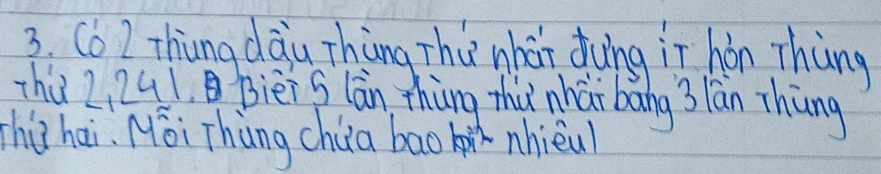 3. Có 2 thùng dầu thùng thứ nhất đựng ít hơn thùng
thứ 2, 24 l. Biết 5 lần thùng thứ nhất bằng 3 lần thùng
thứ hai. Mỗi thùng chứa bao nhiêu l